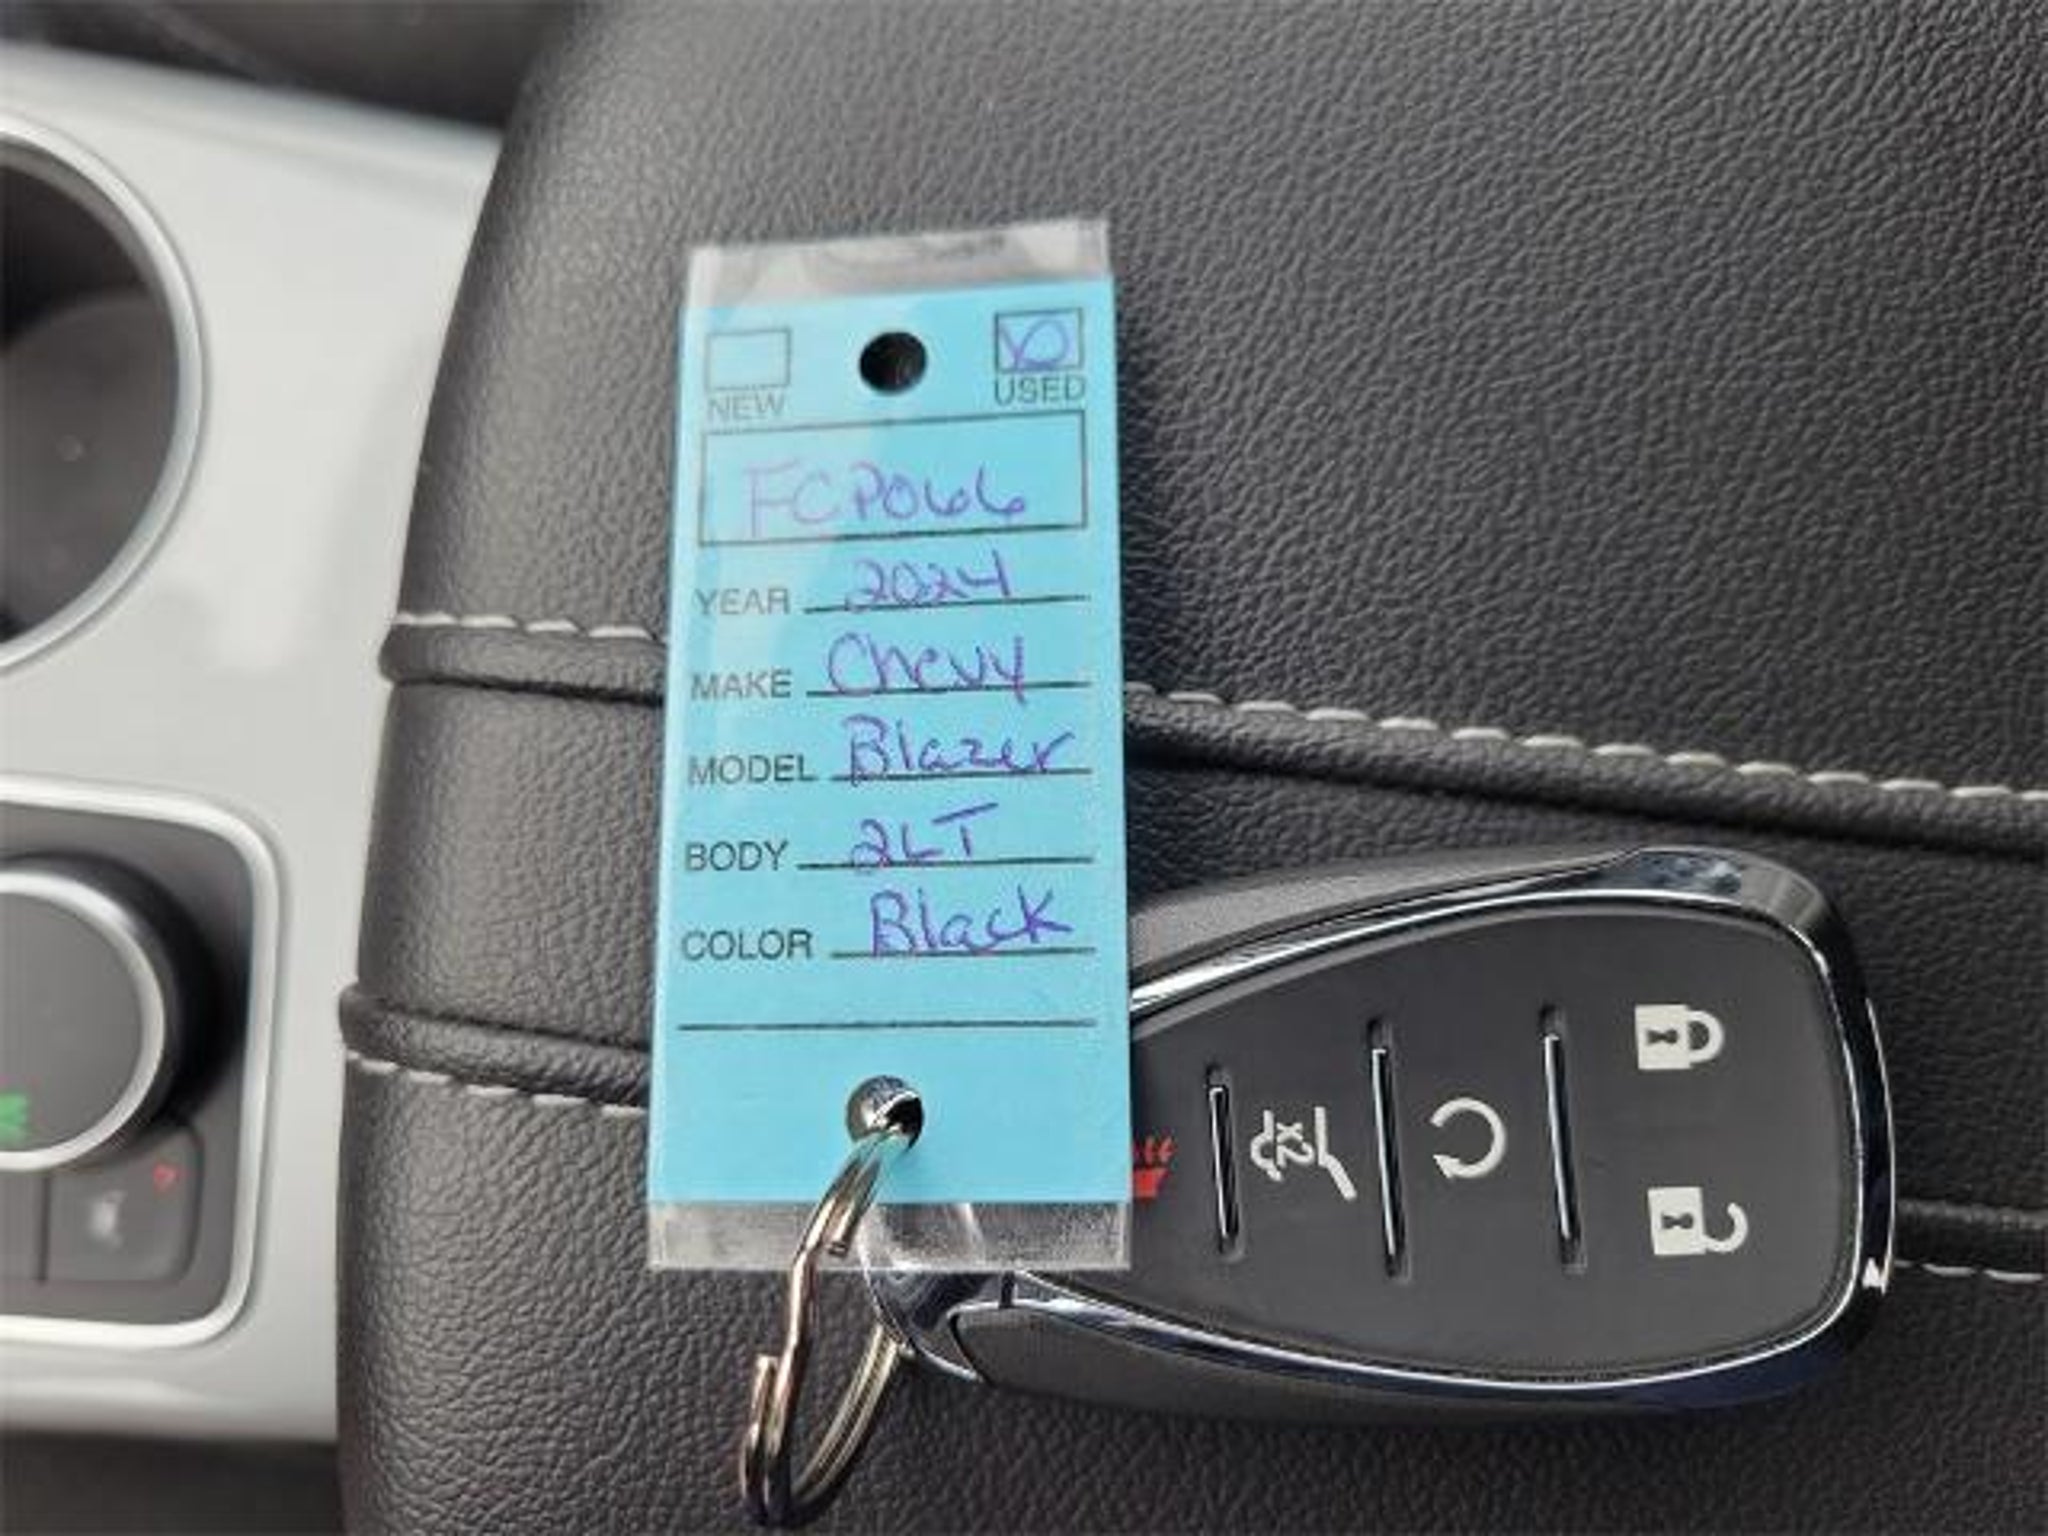 NEW USED
FCP066
YEAR 2024
MAKE Chevy
MODEL Blazer
BODY 2LT
COLOR Black
x2